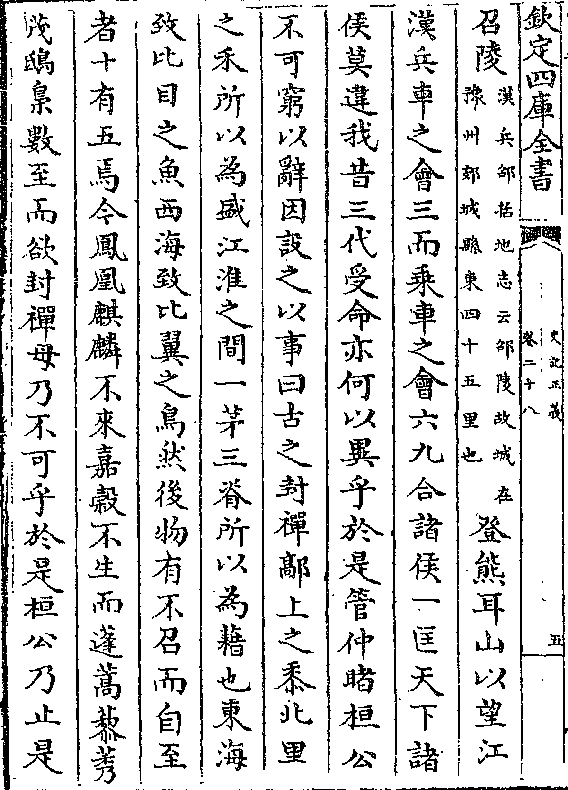 欽定四庫全書
史記正義
卷二十八
五
召陵漢兵部括地志云邵陵故城在
豫州郾城縣東四十五里也登熊耳山以望江
漢兵車之會三而乘車之會六九合諸侯一匡天下諸
侯莫違我昔三代受命亦何以異乎於是管仲睹桓公
不可窮以辭因設之以事曰古之封禪鄗上之黍北里
之禾所以為盛江淮之間一茅三脊所以為藉也東海
致比目之魚西海致比翼之鳥然後物有不召而自至
者十有五焉今鳳凰麒麟不來嘉穀不生而蓬蒿藜莠
茂鴟梟數至而欲封禪毋乃不可乎於是桓公乃止是